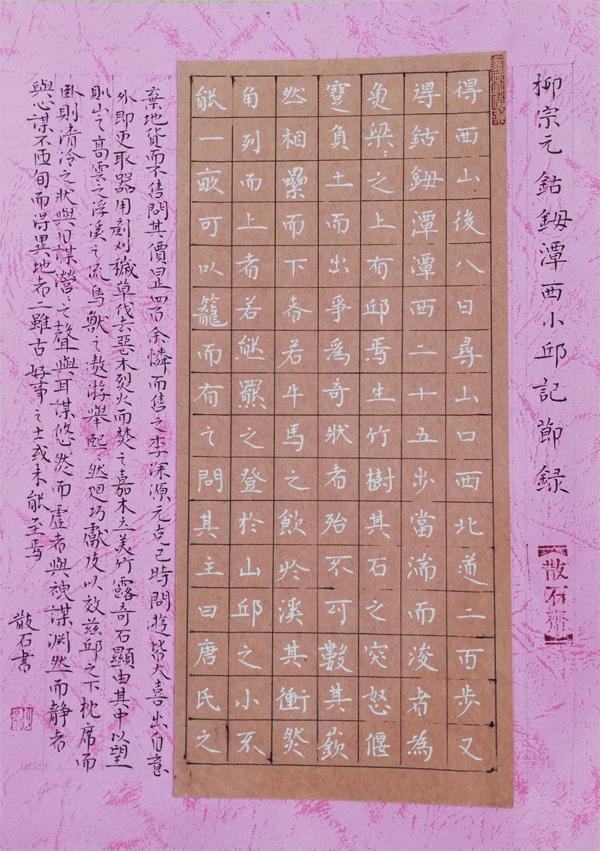 柳宗元鈷鉧潭西小邱記節録
散石齋
得西山後八日尋山口西北道二百步又
得鈷鉧潭潭西二十五步當湍而浚者為
魚梁〻之上有邱焉生竹樹其石之突怒偃
蹇負土而出爭爲奇狀者殆不可數其嶔
然相纍而下者若牛馬之飲於溪其衝然
角列而上者若熊羆之登於山邱之小不
能一畝可以籠而有之問其主曰唐氏之
棄地貨而不售問其價曰止四百余憐而售之李深源元克己時同遊皆大喜出自意
外即更取器用剷刈穢草伐去惡木烈火而焚之嘉木立美竹露奇石顯由其中以望
則山之高雲之浮溪之流鳥獸之遨游舉熙〻然迴巧獻技以效茲邱之下枕席而
臥則清泠之狀與目謀營〻之聲與耳謀悠然而虛者與神謀淵然而静者
與心謀不匝旬而得異地者二雖古好事之士或未能至焉
散石書